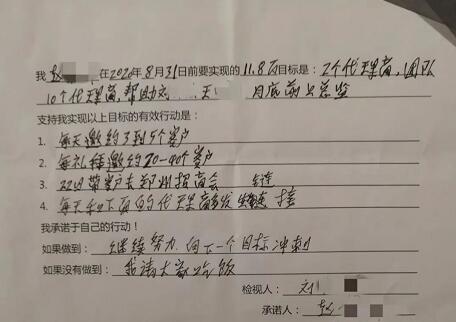 我 赵 在2020年8月31日前要实现的11.8万目标是：2个代理商，团队
10个代理商，帮助 月底前上总监
支持我实现以上目标的有效行动是：
1. 每天邀约3到5个客户
2. 每礼拜邀约20-40个客户
3. 22日带客户去郑州招商会
4. 每天和下面的代理商多发 接
我承诺于自己的行动！
如果做到：继续努力，向下一个目标冲刺
如果没有做到：我请大家吃饭
检视人：刘
承诺人：赵